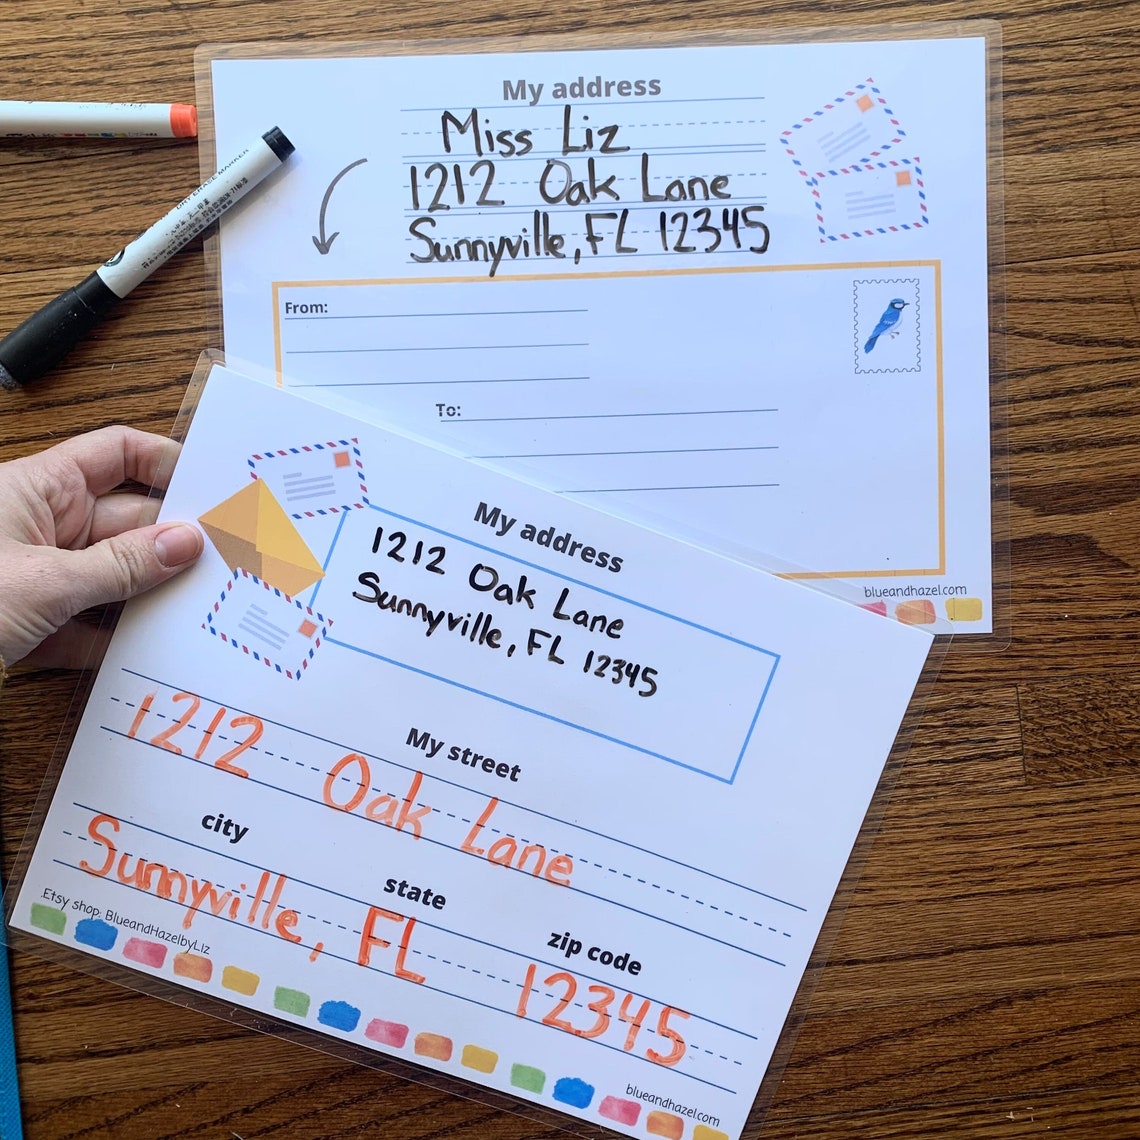 My address
Miss Liz
1212 Oak Lane
Sunnyville, FL 12345
From:
To:
blueandhazel.com
DRY ERASE MARKER
My address
1212 Oak Lane
Sunnyville, FL 12345
My street
1212 Oak Lane
city
state
zip code
Sunnyville, FL 12345
Etsy shop: BlueandHazelbyLiz
blueandhazel.com